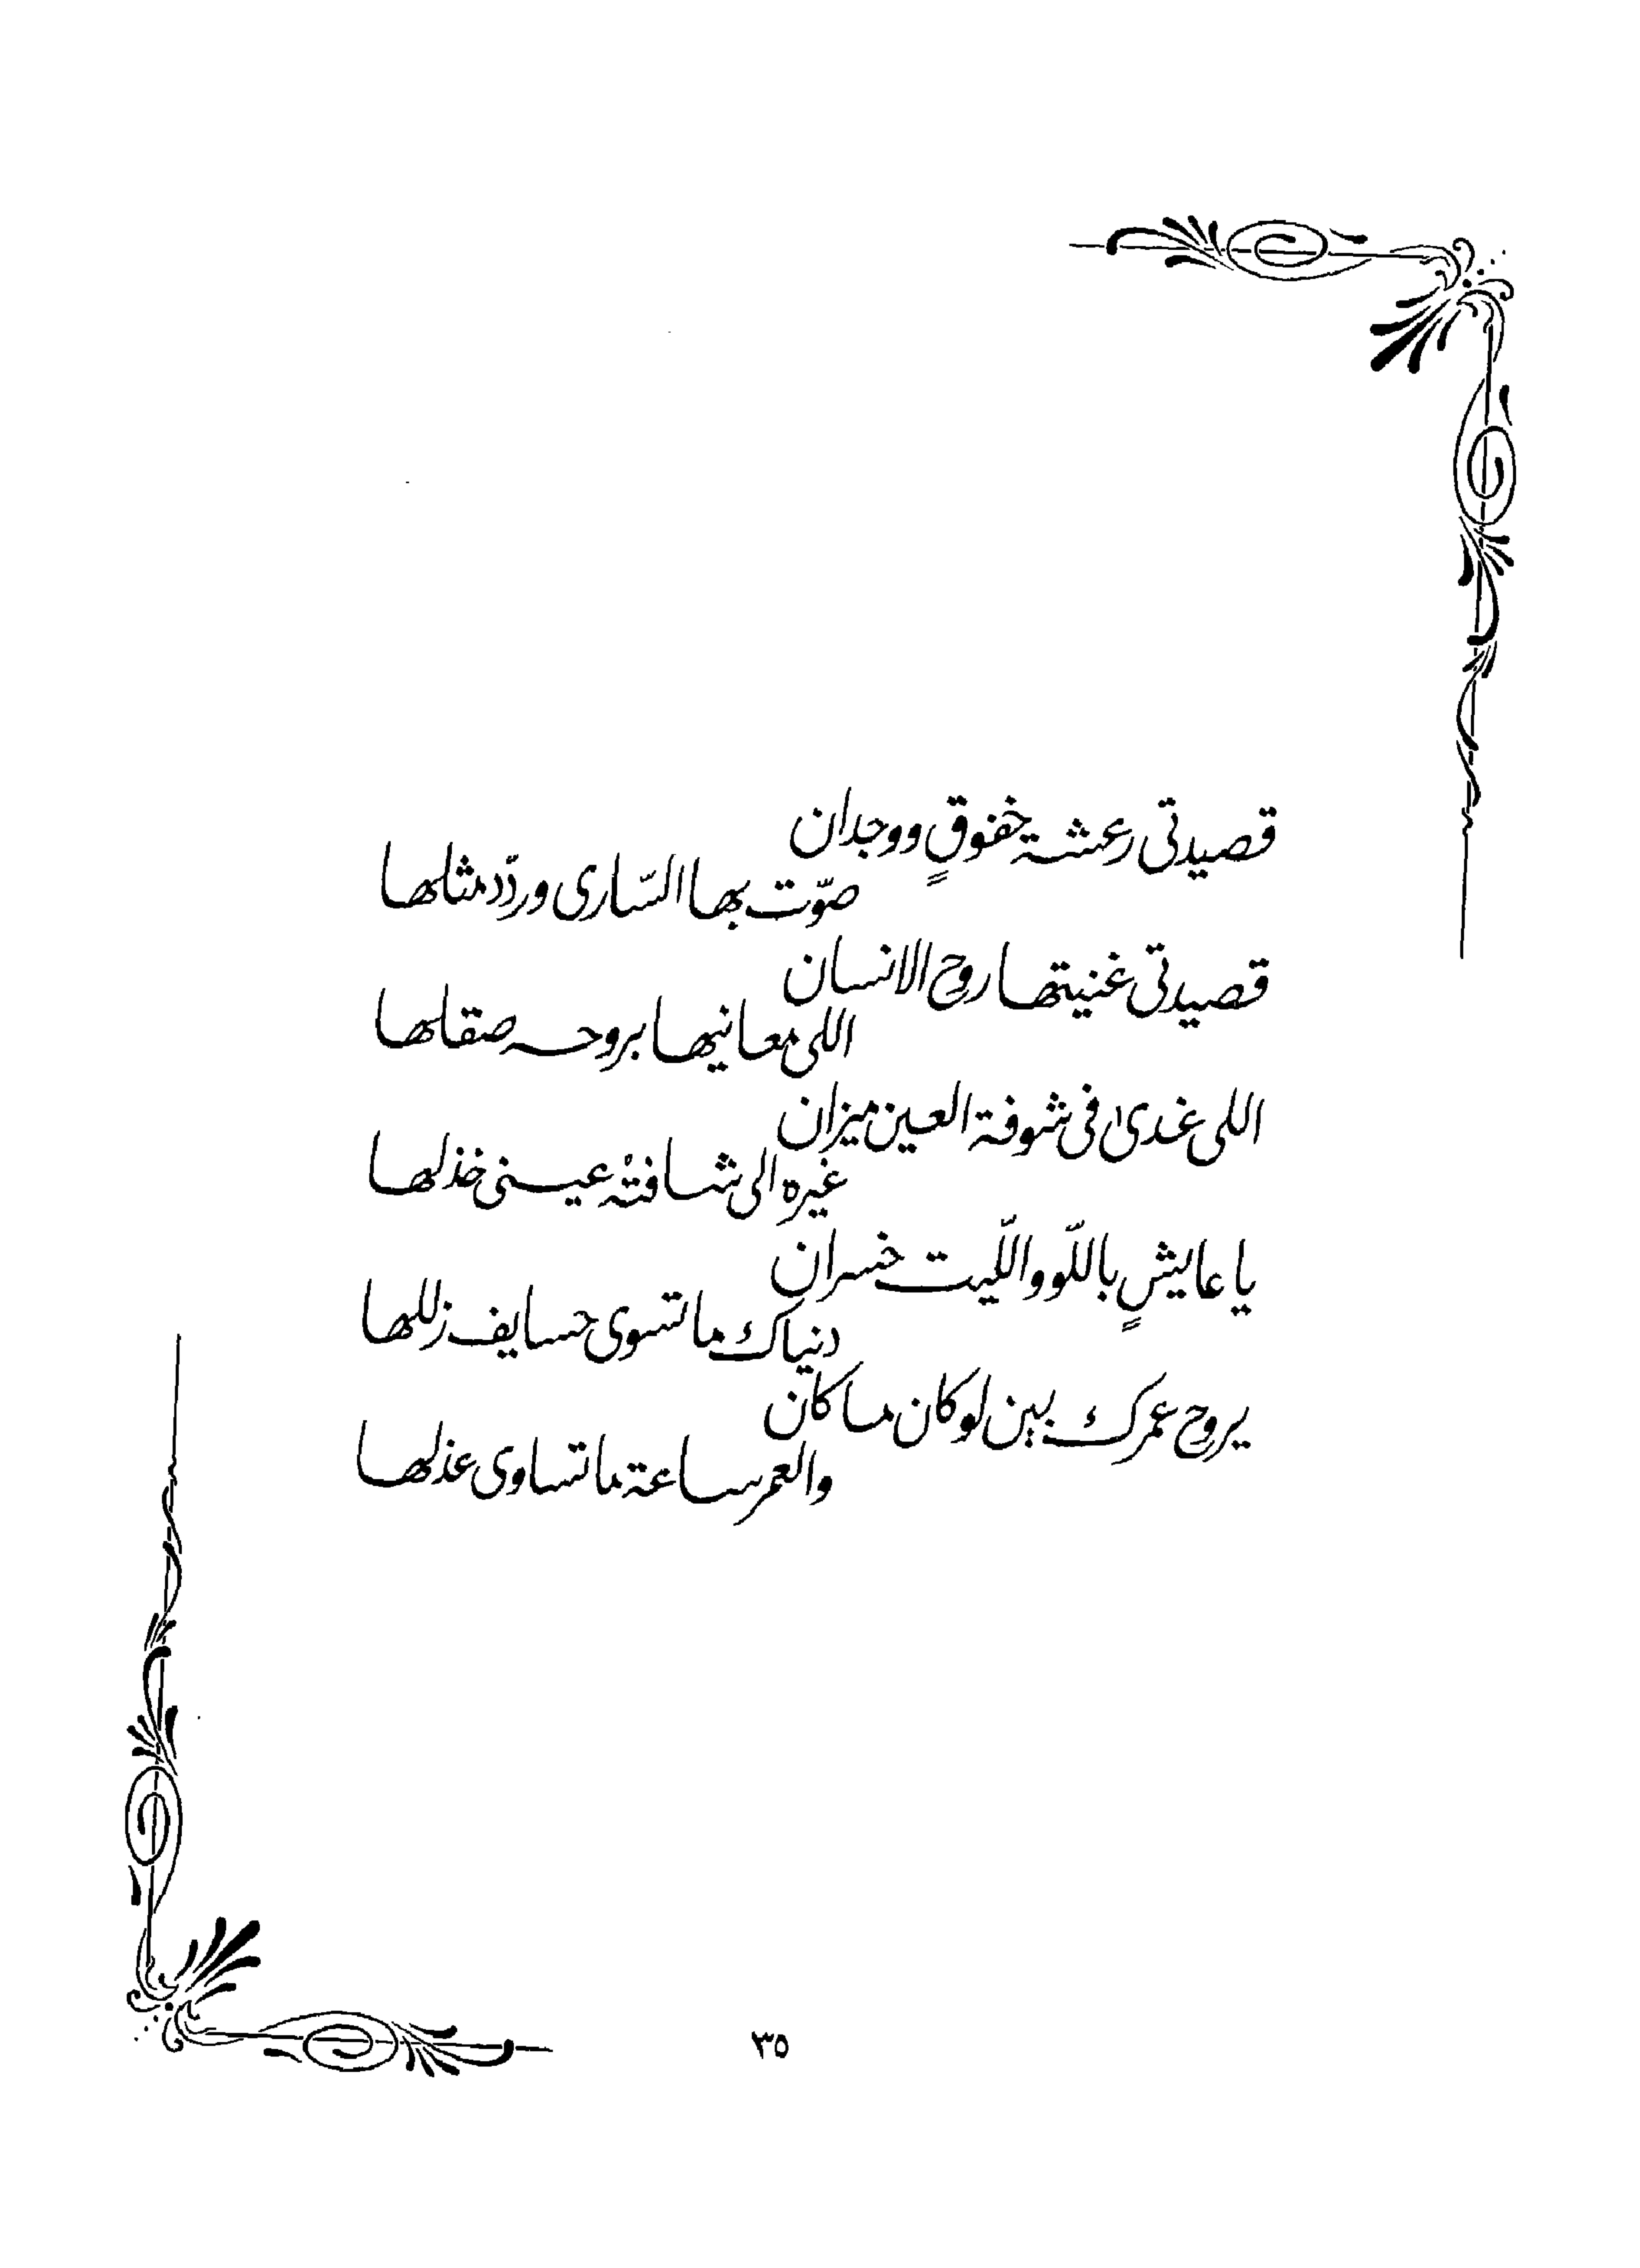 قصيدتى رعشة خفوقٍ ووجدان
صوّت بها السّارى وردّد مثلها
قصيدتى غنيتها روح الانسان
اللى معانيها بروحه صقلها
اللى غدىٰ فى شوفة العين ميزان
غيره الى شافتهْ عينى خذلها
يا عايشٍ باللّو واللّيت خسران
دنياك ما تسوى حسايف زللها
يروح عمرك بين لو كان ما كان
والعمر ساعة ما تساوى عذلها
٣٥